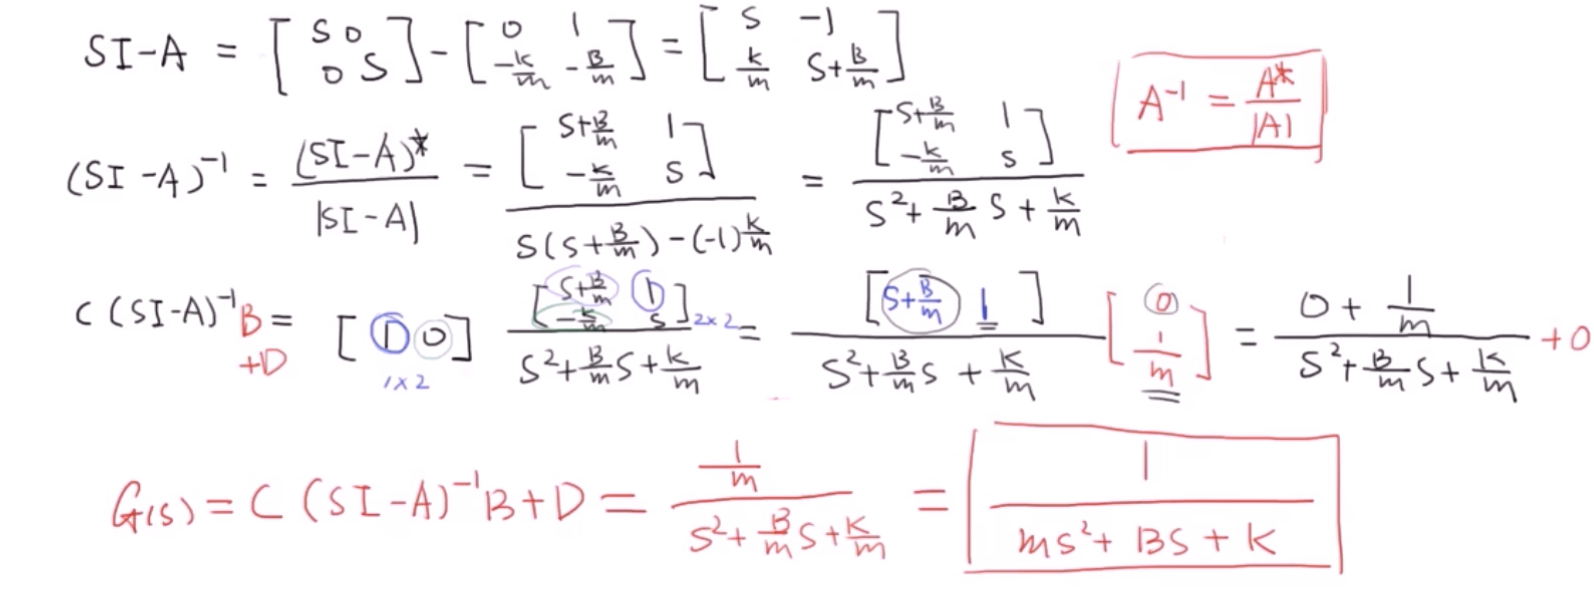 SI-A = [S 0; 0 S] - [0 1; -k/m -B/m] = [S -1; k/m S+B/m]
A⁻¹ = A*/|A|
(SI-A)⁻¹ = (SI-A)*/|SI-A| = [S+B/m 1; -k/m S]/(S(S+B/m)-(-1)k/m) = [S+B/m 1; -k/m S]/(S²+B/m S+k/m)
C(SI-A)⁻¹B+D = [1 0] 1×2 [S+B/m 1; -k/m S] 2×2/(S²+B/m S+k/m) = [S+B/m 1]/(S²+B/m S+K/m) [0; 1/m] = (0+1/m)/(S²+B/m S+K/m) +0
G(S) = C(SI-A)⁻¹B+D = (1/m)/(S²+B/m S+K/m) = 1/(mS²+BS+K)